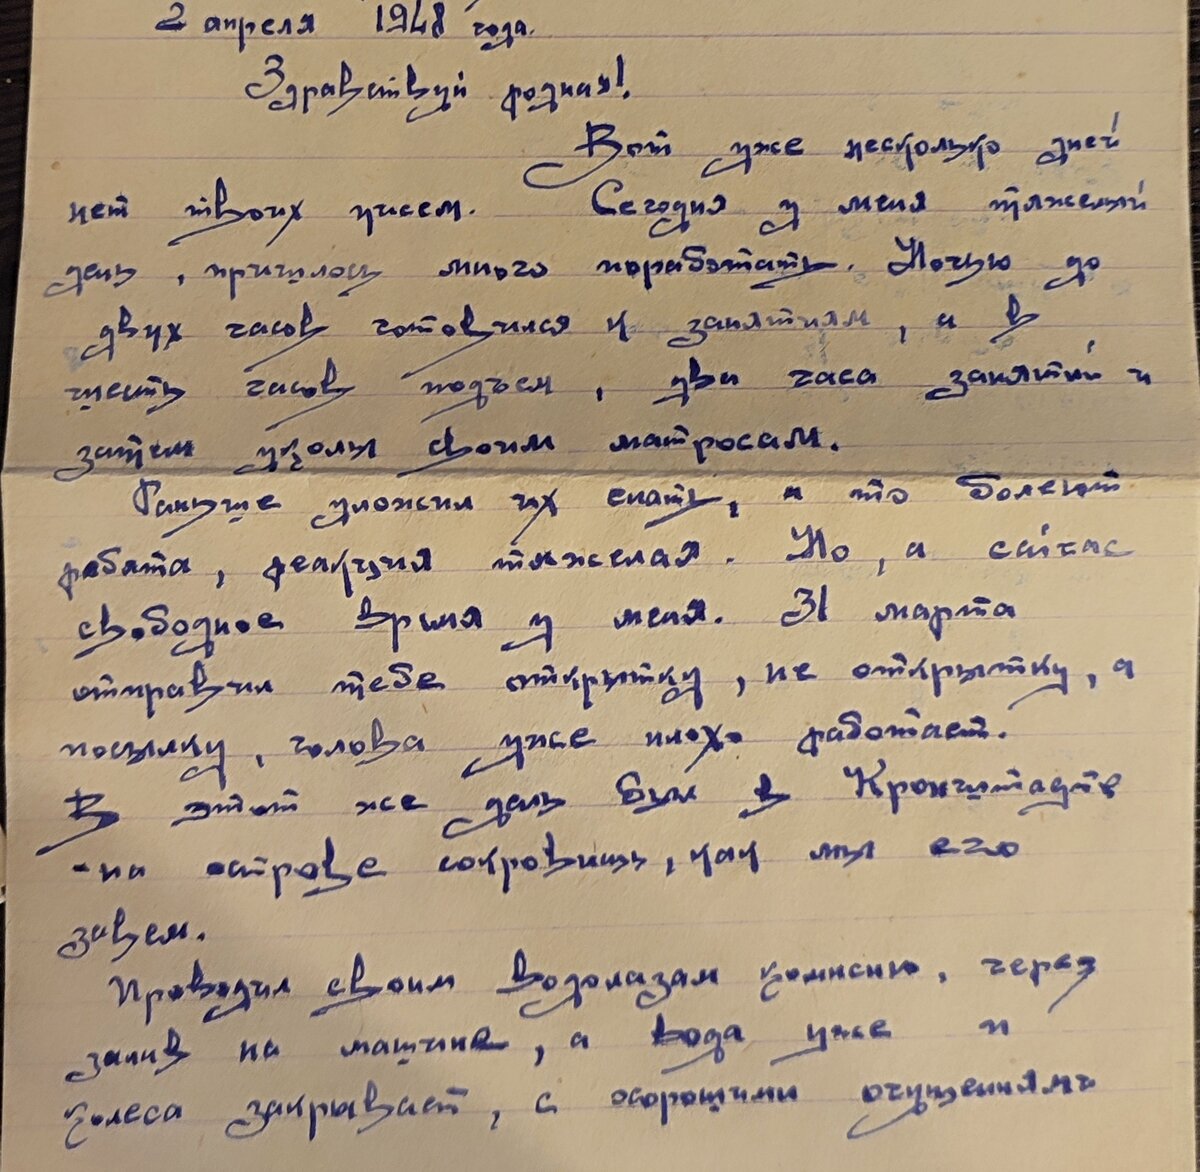 2 апреля 1948 года.
Здравствуй родная!
Вот уже несколько дней
нет твоих писем. Сегодня у меня тяжелый
день, пришлось много поработать. Ночью до
двух часов готовился к занятиям, а в
шесть часов подъем, два часа занятий и
затем уколы своим матросам.
Раньше уложил их спать, а то болеют
ребята, реакция тяжелая. Но, а сейчас
свободное время у меня. 31 марта
отправил тебе открытку, не открытку, а
посылку, голова уже плохо работает.
В этот же день был в Кронштадте
-на острове сокровищ, как мы его
зовем.
Проводил своим водолазам комисию, через
залив на машине, а вода уже и
колеса закрывает, с хорошими очущениями